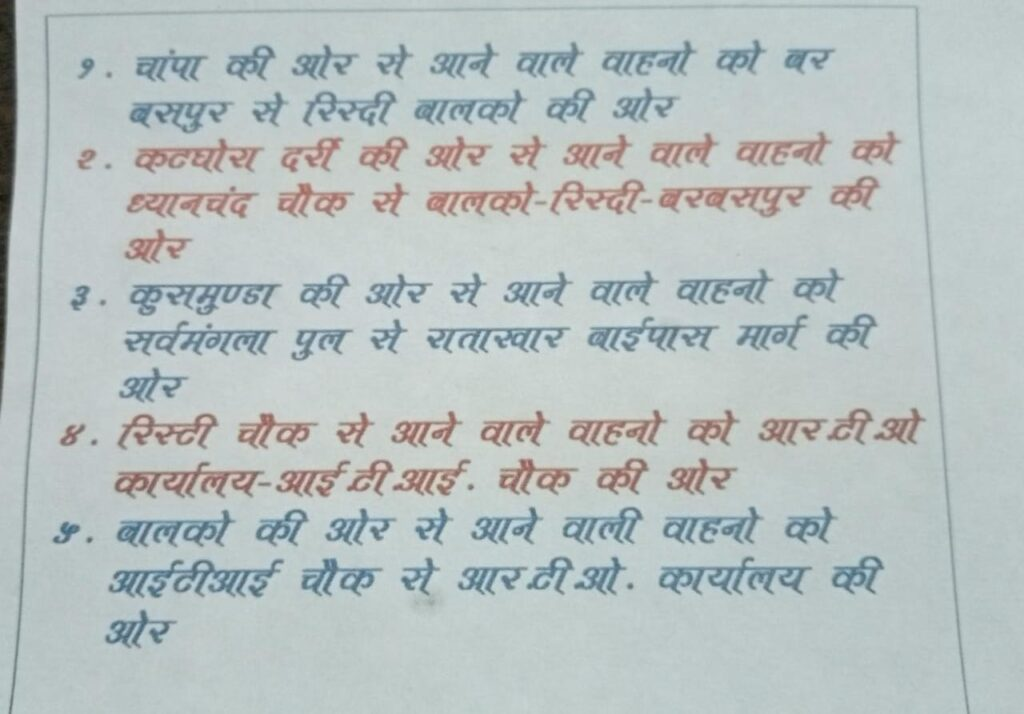 १. चांपा की ओर से आने वाले वाहनो को बर
बसपुर से रिस्दी बालको की ओर
२. कटघोरा दर्री की ओर से आने वाले वाहनो को
ध्यानचंद चौक से बालको-रिस्दी-बरबसपुर की
ओर
३. कुसमुण्डा की ओर से आने वाले वाहनो को
सर्वमंगला पुल से राताखार बाईपास मार्ग की
ओर
४. रिस्टी चौक से आने वाले वाहनो को आर.टी.ओ
कार्यालय-आई.टी.आई. चौक की ओर
५. बालको की ओर से आने वाली वाहनो को
आईटीआई चौक से आर.टी.ओ. कार्यालय की
ओर